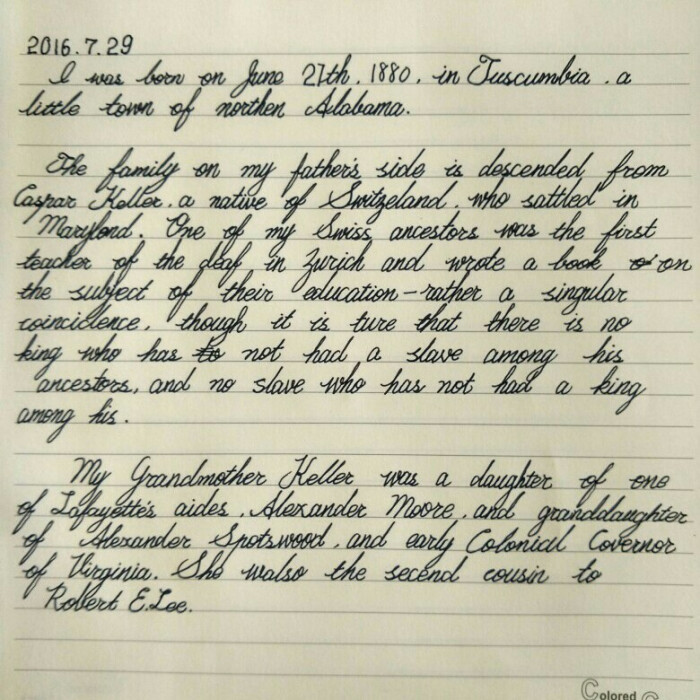 2016.7.29
I was born on June 27th, 1880, in Tuscumbia, a
little town of northen Alabama.
The family on my father's side is descended from
Caspar Keller, a native of Switzeland, who sattled in
Marylond. One of my Swiss ancestors was the first
teacher of the deaf in Zurich and wrote a book on
the subject of their education-rather a singular
coincidence, though it is ture that there is no
king who has not had a slave among his
ancestors, and no slave who has not had a king
among his.
My Grandmother Keller was a daughter of one
of Lafayette's aides, Alexander Moore, and granddaughter
of Alexander Spotswood, and early Colonial Covernor
of Virginia. She walso the second cousin to
Robert E.Lee.
Colored